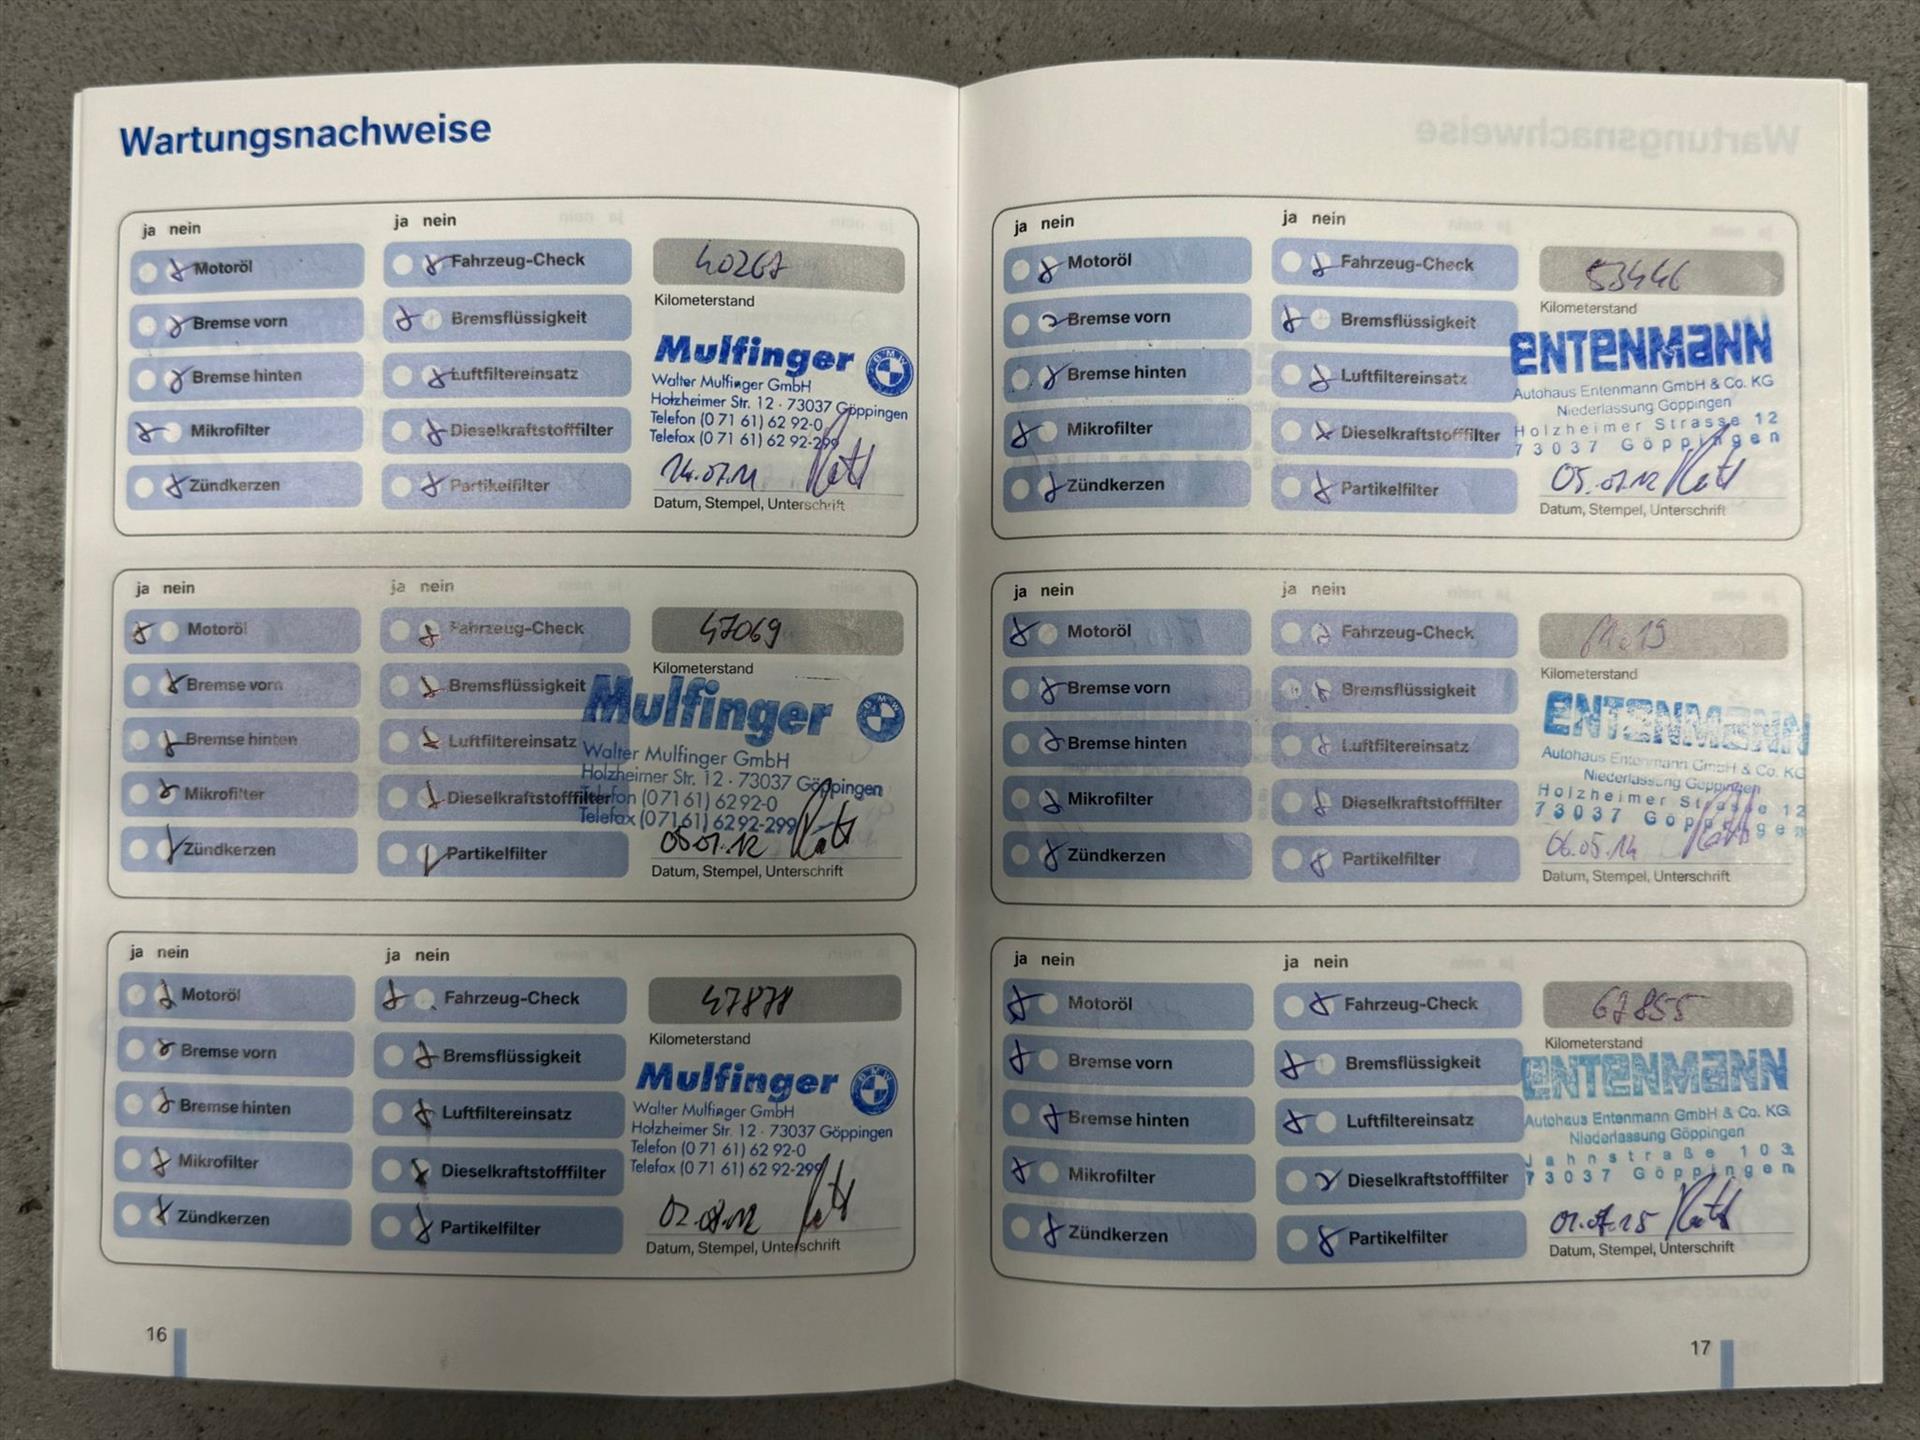 Wartungsnachweise
ja nein
ja nein
Motoröl
Fahrzeug-Check
40267
Bremse vorn
Bremsflüssigkeit
Kilometerstand
Bremse hinten
Luftfiltereinsatz
Mulfinger
BMW
Walter Mulfinger GmbH
Holzheimer Str. 12 · 73037 Göppingen
Mikrofilter
Dieselkraftstofffilter
Telefon (0 71 61) 62 92-0
Telefax (0 71 61) 62 92-299
Zündkerzen
Partikelfilter
14.07.11
Datum, Stempel, Unterschrift
ja nein
ja nein
Motoröl
Fahrzeug-Check
47069
Bremse vorn
Bremsflüssigkeit
Kilometerstand
Bremse hinten
Luftfiltereinsatz
Mulfinger
BMW
Walter Mulfinger GmbH
Holzheimer Str. 12 · 73037 Göppingen
Mikrofilter
Dieselkraftstofffilter
Telefon (0 71 61) 62 92-0
Telefax (0 71 61) 62 92-299
Zündkerzen
Partikelfilter
Datum, Stempel, Unterschrift
ja nein
ja nein
Motoröl
Fahrzeug-Check
47878
Bremse vorn
Bremsflüssigkeit
Kilometerstand
Bremse hinten
Luftfiltereinsatz
Mulfinger
BMW
Walter Mulfinger GmbH
Holzheimer Str. 12 · 73037 Göppingen
Mikrofilter
Dieselkraftstofffilter
Telefon (0 71 61) 62 92-0
Telefax (0 71 61) 62 92-299
Zündkerzen
Partikelfilter
Datum, Stempel, Unterschrift
16
ja nein
ja nein
Motoröl
Fahrzeug-Check
53446
Bremse vorn
Bremsflüssigkeit
Kilometerstand
Bremse hinten
Luftfiltereinsatz
ENTENMANN
Autohaus Entenmann GmbH & Co. KG
Niederlassung Göppingen
Mikrofilter
Dieselkraftstofffilter
Holzheimer Strasse 12
73037 Göppingen
Zündkerzen
Partikelfilter
Datum, Stempel, Unterschrift
ja nein
ja nein
Motoröl
Fahrzeug-Check
Bremse vorn
Bremsflüssigkeit
Kilometerstand
Bremse hinten
Luftfiltereinsatz
ENTENMANN
Autohaus Entenmann GmbH & Co. KG
Niederlassung Göppingen
Mikrofilter
Dieselkraftstofffilter
Holzheimer Strasse 12
73037 Göppingen
Zündkerzen
Partikelfilter
06.05.14
Datum, Stempel, Unterschrift
ja nein
ja nein
Motoröl
Fahrzeug-Check
67855
Bremse vorn
Bremsflüssigkeit
Kilometerstand
Bremse hinten
Luftfiltereinsatz
ENTENMANN
Autohaus Entenmann GmbH & Co. KG.
Niederlassung Göppingen
Mikrofilter
Dieselkraftstofffilter
Jahnstraße 103
73037 Göppingen
Zündkerzen
Partikelfilter
01.07.15
Datum, Stempel, Unterschrift
17